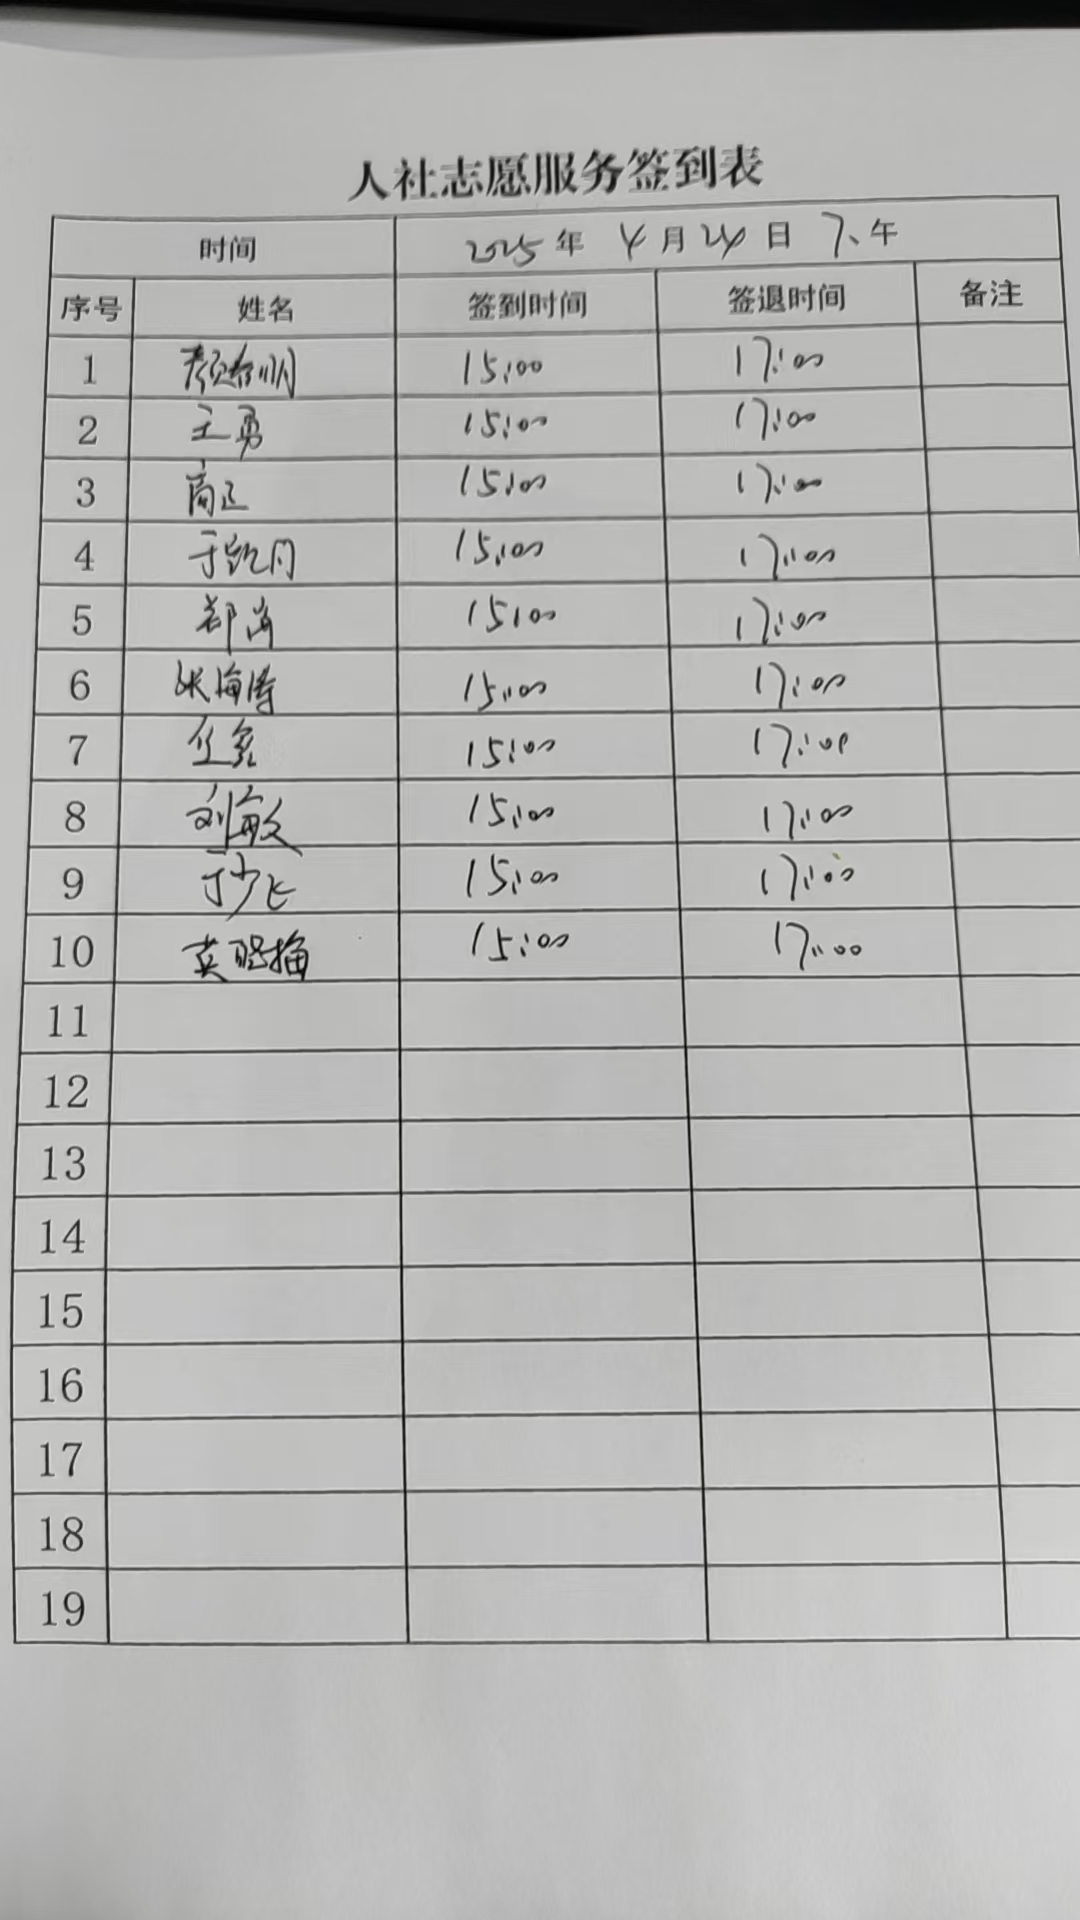 人社志愿服务签到表
时间 2025年 4月24日 下午
序号 姓名 签到时间 签退时间 备注
1 15:00 17:00
2 王勇 15:00 17:00
3 商正 15:00 17:00
4 于凯月 15:00 17:00
5 郑尚 15:00 17:00
6 张海涛 15:00 17:00
7 15:00 17:00
8 刘敏 15:00 17:00
9 丁少飞 15:00 17:00
10 15:00 17:00
11
12
13
14
15
16
17
18
19